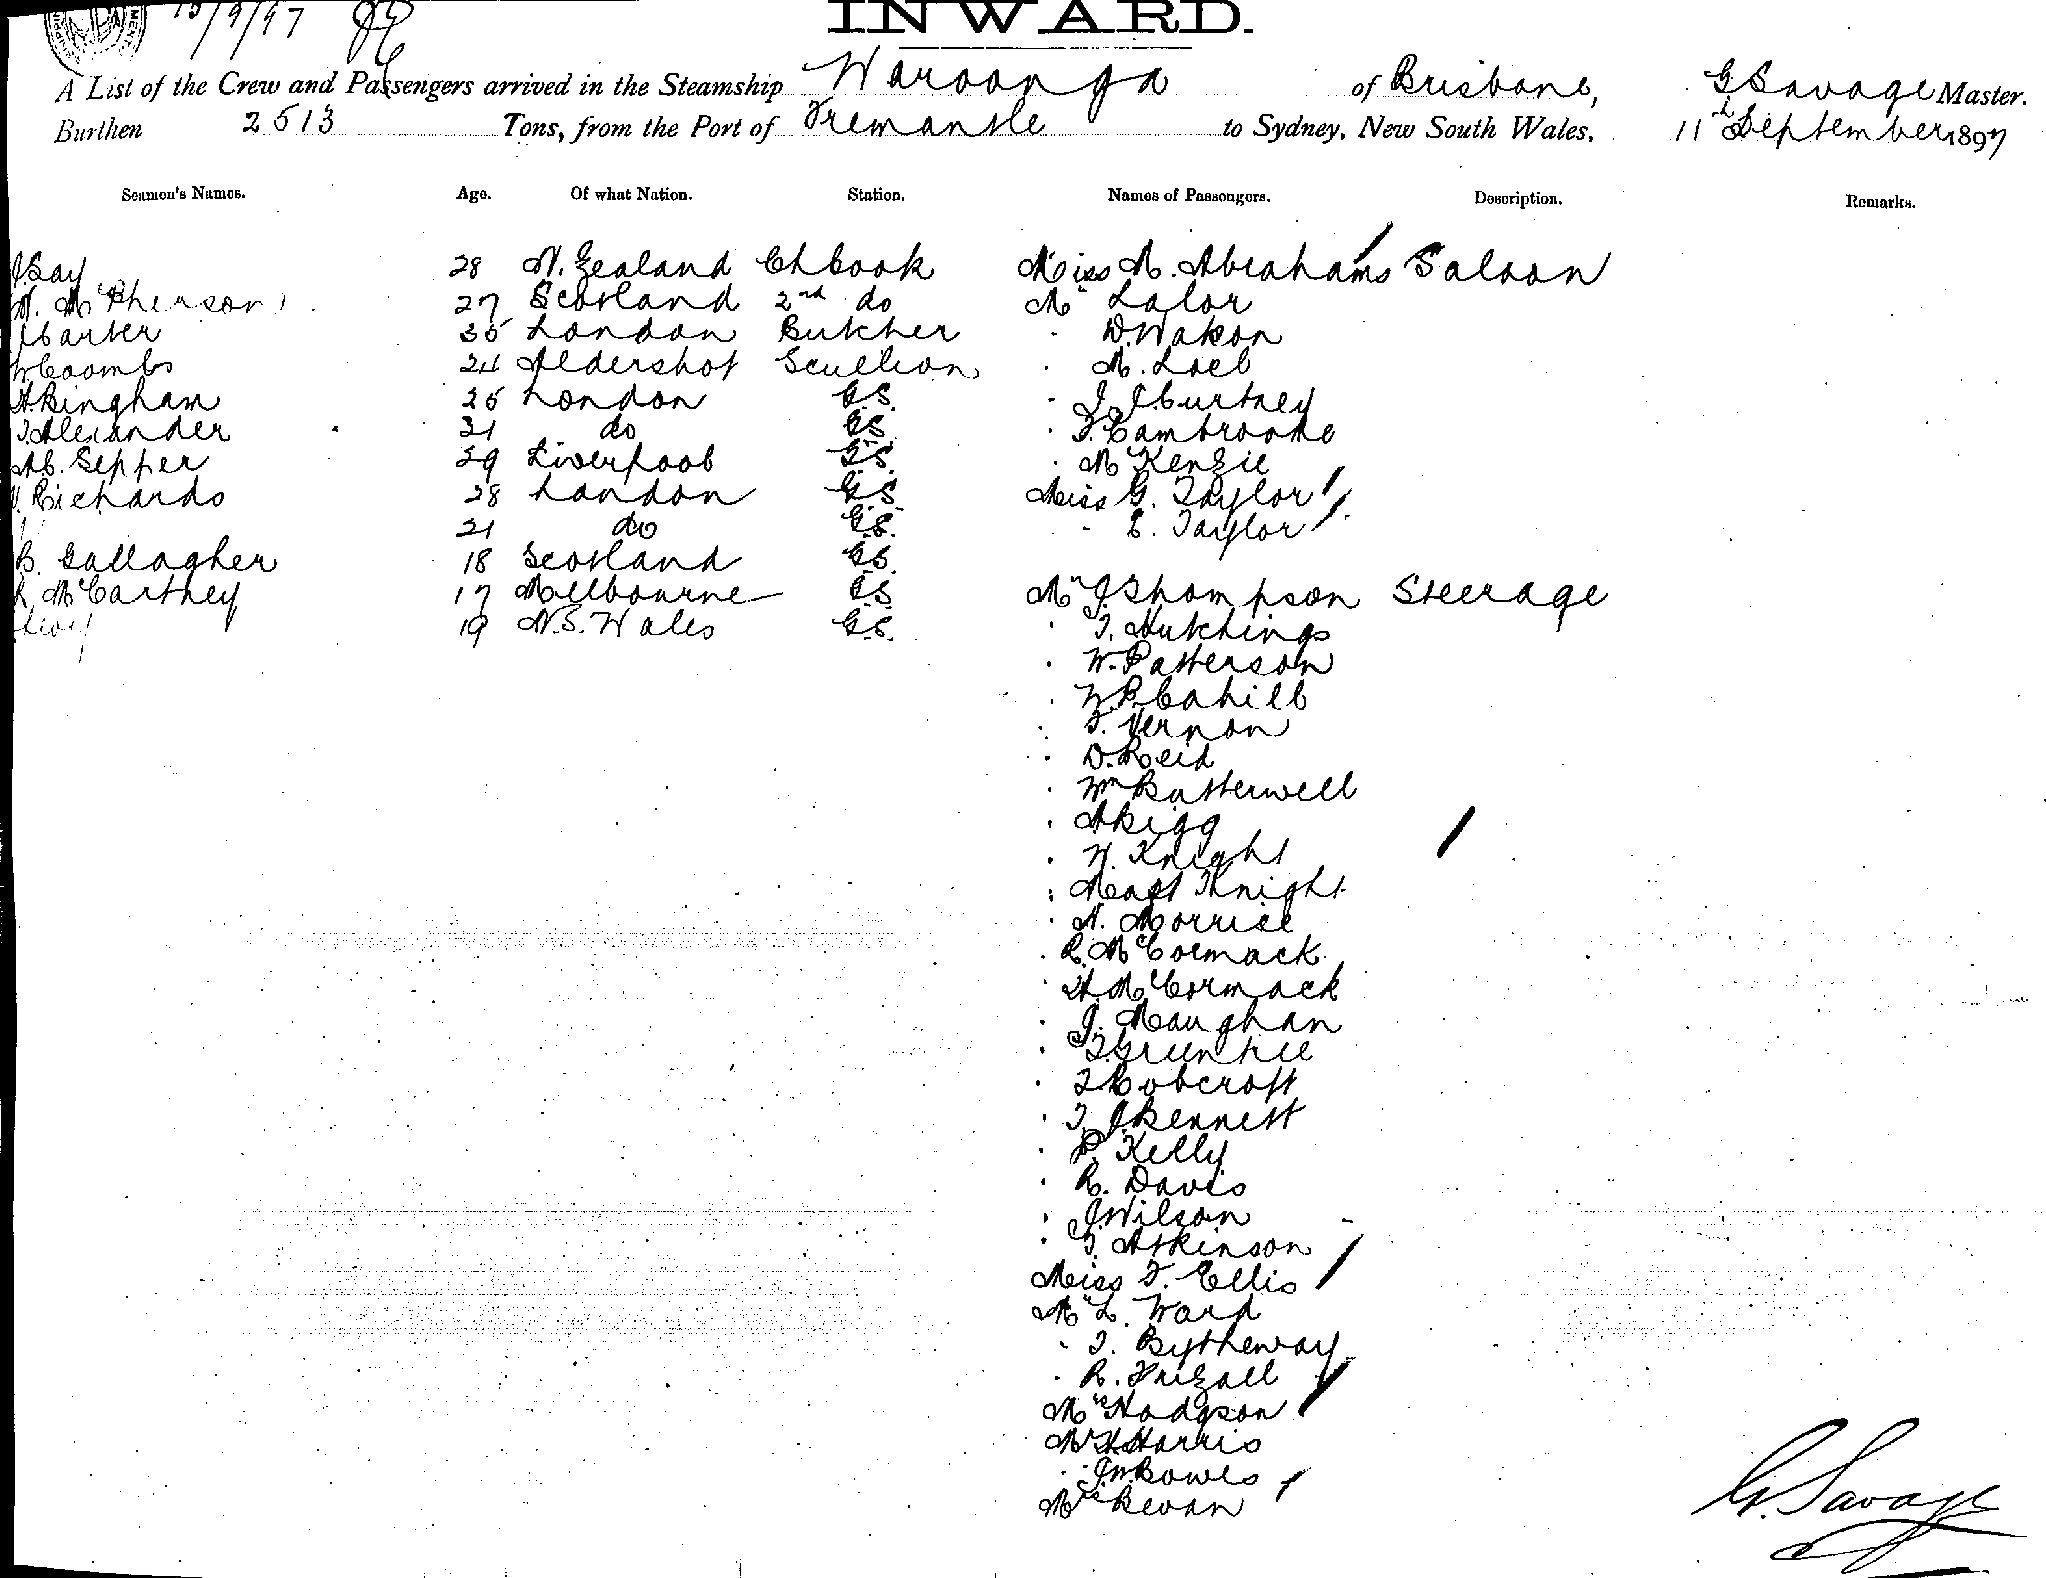 15/9/97
INWARD.
A List of the Crew and Passengers arrived in the Steamship Waroonga of Brisbane, G Savage Master.
Burthen 2513 Tons, from the Port of Fremantle to Sydney, New South Wales, 11th September 1897
Seamen's Names. Age. Of what Nation. Station. Names of Passengers. Description. Remarks.
J. Gay 28 N. Zealand Ch Cook Miss M. Abrahams Saloon
McPherson 27 Scotland 2nd do Mr Lalor
J Carter 35 London Butcher " D. Wakon
W Coombs 24 Aldershot Scullion " M. Loel
H. Bingham 25 London G.S. " J. J. Curtney
T. Alexander 31 do G.S. " F. Cambrooke
A C. Sepper 29 Liverpool G.S. " McKenzie
Richards 28 London G.S. Miss G. Taylor
21 do G.S. " E. Taylor
B. Gallagher 18 Scotland G.S.
R McCartney 17 Melbourne G.S. Mr J. Thompson Steerage
19 N.S. Wales G.S. " T. Hutchings
" W. Patterson
" W. P. Cahill
" F. Vernon
" D. Reid
" Wm Batterwell
" A Bigg
" W. Knight
" Mast Knight
" N. Morrise
" R. McCormack
" H. McCormack
" J. Maughan
" T. Greentree
" T Robcroft
" T. J. Bennett
" P. Kelly
" R. Davis
" J. Wilson
" T. Atkinson
Miss F. Ellis
Mr L. Ward
" T. Bytheway
" R. Frizall
Mrs Hodgson
Mr H. Harris
" Jn Bowes
Mrs Bevan
G. Savage